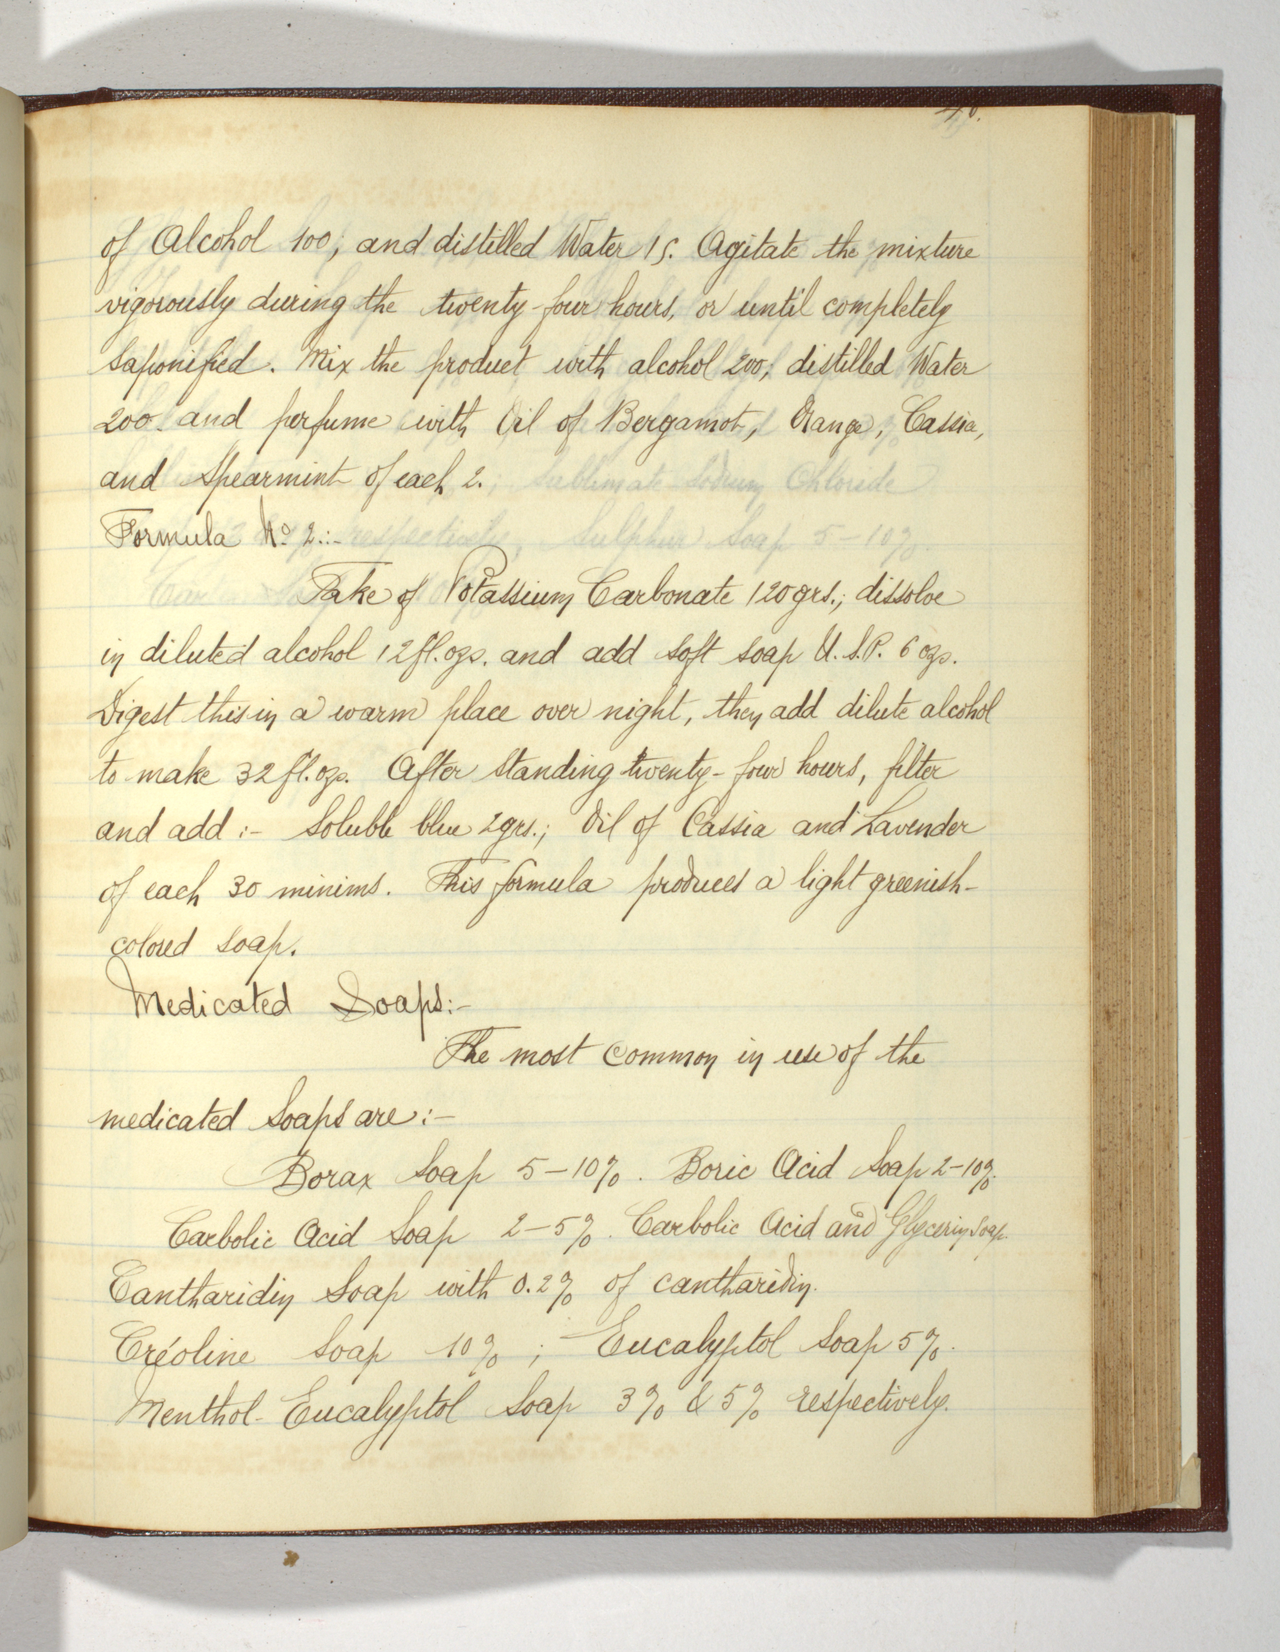 of Alcohol 100; and distilled Water 15. Agitate the mixture
vigorously during the twenty-four hours, or until completely
saponified. Mix the product with alcohol 200, distilled Water
200. and perfume with Oil of Bergamot, Orange, Cassia,
and Spearmint of each 2.
Formula No. 2.:-
Take of Potassium Carbonate 120 grs.; dissolve
in diluted alcohol 12 fl. ozs. and add soft soap U.S.P. 6 ozs.
Digest this in a warm place over night, then add dilute alcohol
to make 32 fl. ozs. After standing twenty-four hours, filter
and add:- Soluble blue 2 grs.; Oil of Cassia and Lavender
of each 30 minims. This formula produces a light greenish-
colored soap.
Medicated Soaps:-
The most common in use of the
medicated Soaps are:-
Borax Soap 5-10%. Boric Acid Soap 2-10%.
Carbolic Acid Soap 2-5%. Carbolic Acid and Glycerin Soap.
Cantharidin Soap with 0.2% of cantharidin.
Créoline Soap 10%; Eucalyptol Soap 5%.
Menthol-Eucalyptol Soap 3% & 5% respectively.